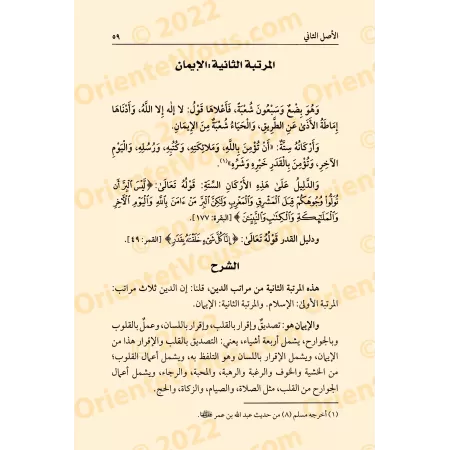 الأصل الثاني
٥٩
المرتبة الثانية: الإيمان
وَهُوَ بِضْعٌ وَسَبْعُونَ شُعْبَةً، فَأَعْلاهَا قَوْلُ: لا إِلٰه إِلا اللَّهُ، وَأَدْنَاهَا
إِمَاطَةُ الأَذَىٰ عَنِ الطَّرِيقِ، وَالْحَيَاءُ شُعْبَةٌ مِنَ الإِيمَانِ.
وَأَرْكَانُهُ سِتَّةٌ: «أَنْ تُؤْمِنَ بِاللَّهِ، وَمَلائِكَتِهِ، وَكُتُبِهِ، وَرُسُلِهِ، وَالْيَوْمِ
الآخِرِ، وَتُؤْمِنَ بِالْقَدَرِ خَيْرِهِ وَشَرِّهِ»(١).
وَالدَّلِيلُ عَلَىٰ هَذِهِ الأَرْكَانِ السِّتَّةِ: قَوْلُهُ تَعَالَىٰ: ﴿لَّيْسَ ٱلْبِرَّ أَن
تُوَلُّوا۟ وُجُوهَكُمْ قِبَلَ ٱلْمَشْرِقِ وَٱلْمَغْرِبِ وَلَـٰكِنَّ ٱلْبِرَّ مَنْ ءَامَنَ بِٱللَّهِ وَٱلْيَوْمِ ٱلْـَٔاخِرِ
وَٱلْمَلَـٰٓئِكَةِ وَٱلْكِتَـٰبِ وَٱلنَّبِيِّـۧنَ﴾ [البقرة: ١٧٧].
ودليل القدر قَوْلُهُ تَعَالَىٰ: ﴿إِنَّا كُلَّ شَىْءٍ خَلَقْنَـٰهُ بِقَدَرٍ﴾ [القمر: ٤٩].
الشرح
هذه المرتبة الثانية من مراتب الدين، قلنا: إن الدين ثلاث مراتب:
المرتبة الأولىٰ: الإسلام. والمرتبة الثانية: الإيمان.
والإيمان هو: تصديقٌ بالقلب، وإقرار باللسان، وعملٌ بالقلوب
وبالجوارح، يشمل أربعة أشياء، يعني: التصديق بالقلب والإقرار هذا من
الإيمان، ويشمل الإقرار باللسان وهو التلفظ به، ويشمل أعمال القلوب؛
من الخشية والخوف والرغبة والرهبة، والمحبة، والرجاء، ويشمل أعمال
الجوارح من القلب، مثل الصلاة، والصيام، والزكاة، والحج.
(١) أخرجه مسلم (٨) من حديث عبد الله بن عمر
© 2022
OrientetVous.com